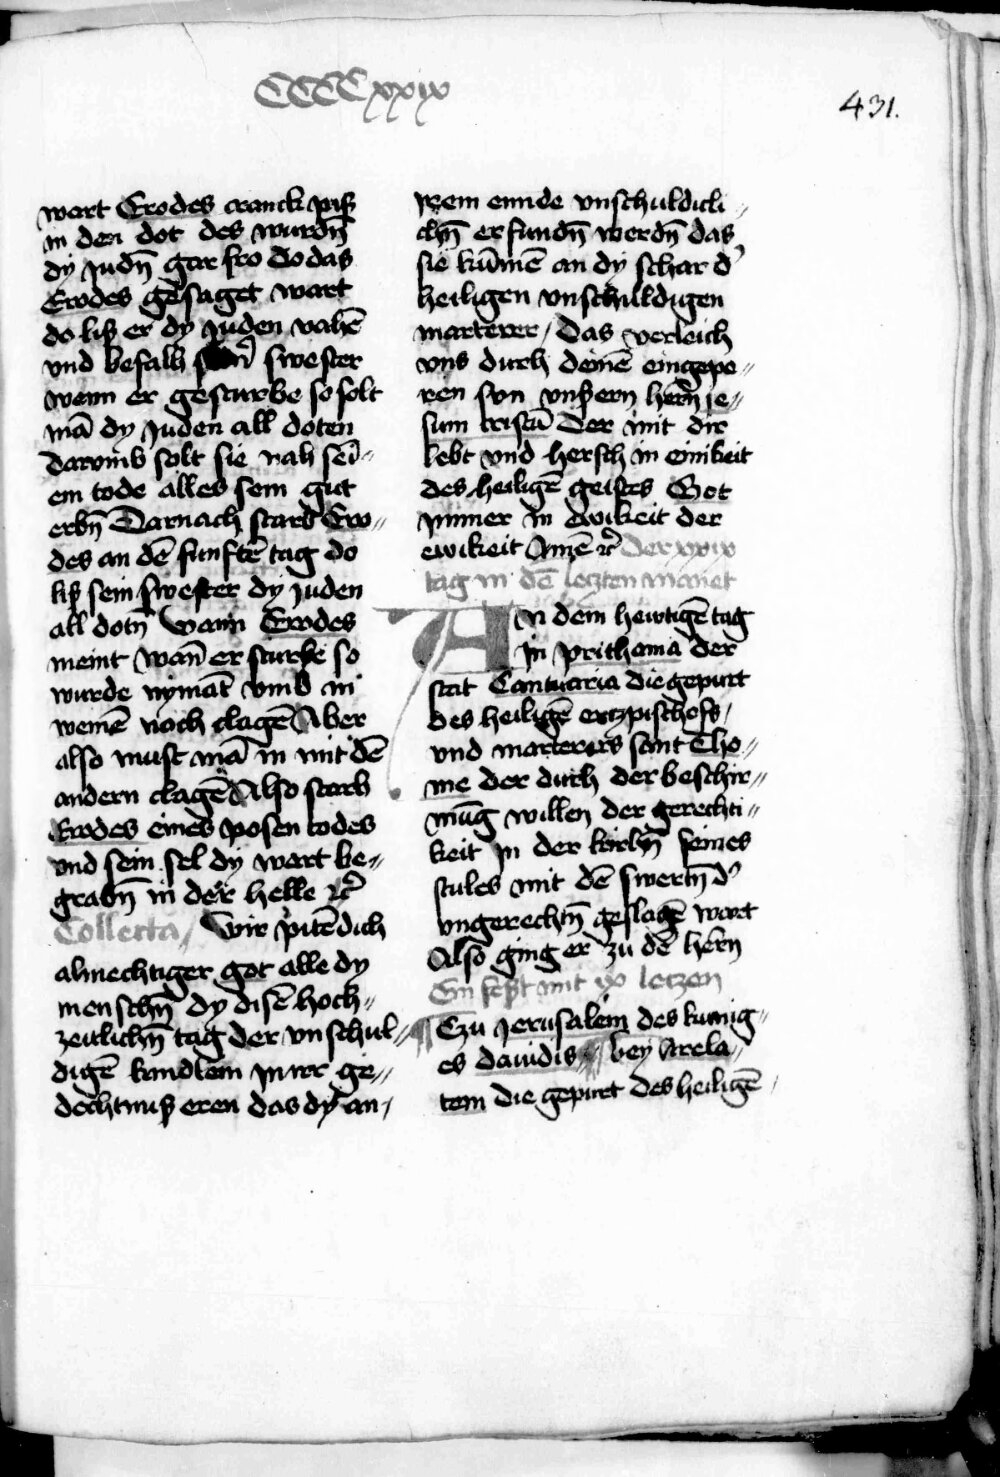 CCCCxxix
431.
wart Erodes cranck piß
in den dot des wurdn̄
dy judn̄ gar fro do das
Erodes gesaget wart
do liß er dy juden vahē
vnd befalh swester
wenn er gesturbe so solt
mā dy juden all doten
darvmb solt sie nah sei⸗
em tode alles sein gut
erbn̄ Darnach starb Ero⸗
des an dē funftē tag do
liß sein swester dy juden
all dotn̄ Wann Erodes
meint wan̄ er sturbe so
wurde nymāt vmb in
wemē noch clagē Aber
also must mā in mit dē
andern clagē Also starb
Erodes eines posen todes
vnd sein sel dy wart be⸗
grabn̄ in der helle ꝛc̄
Collecta / Wir pitē dich
almechtiger got alle dy
menschn̄ dy disē hoch⸗
zeitlichn̄ tag der vnschul⸗
digē kindlein in irr ge⸗
dechtnuß eren das dy an/
irem ennde vnschuldicli⸗
chn̄ erfundn̄ werdn̄ das
sie kūmē an dy schar d'
heiligen vnschulldigen
marterer / Das verleich
vns durch deinē eingepo⸗
ren svn vnsern hern̄ je⸗
sum cristū Der mit dir
lebt vnd hersch in einikeit
des heiligē geistes Got
ymmer in ewikeit der
ewikeit Amē ꝛc̄ Der xxix
tag in dē letzten monet
An dem hewtigē tag
in prithania der
stat Cantuaria die gepurt
des heiligē ertzpischofs /
vnd marterers sant Tho⸗
me der durch der beschir⸗
mūg willen der gerechti⸗
keit in der kirchn̄ seines
stules mit dē swertn̄ d'
vngerechtn̄ geslagē wart
Also ging er zu dē hern̄
Ein fest mit ix letzen
Czu jerusalem des kunig⸗
es dauidis⸗ bey Arela⸗
tem die gepurt des heiligē